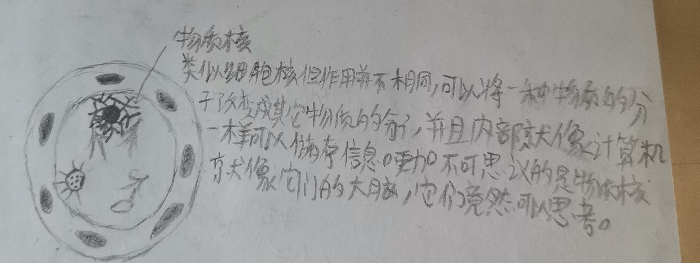 物质核
类似细胞核但作用并不相同,可以将一种物质的分
子改变成其它物质的分子,并且内部就像计算机
一样可以储存信息。更加不可思议的是物质核
就像它们的大脑,它们竟然可以思考。